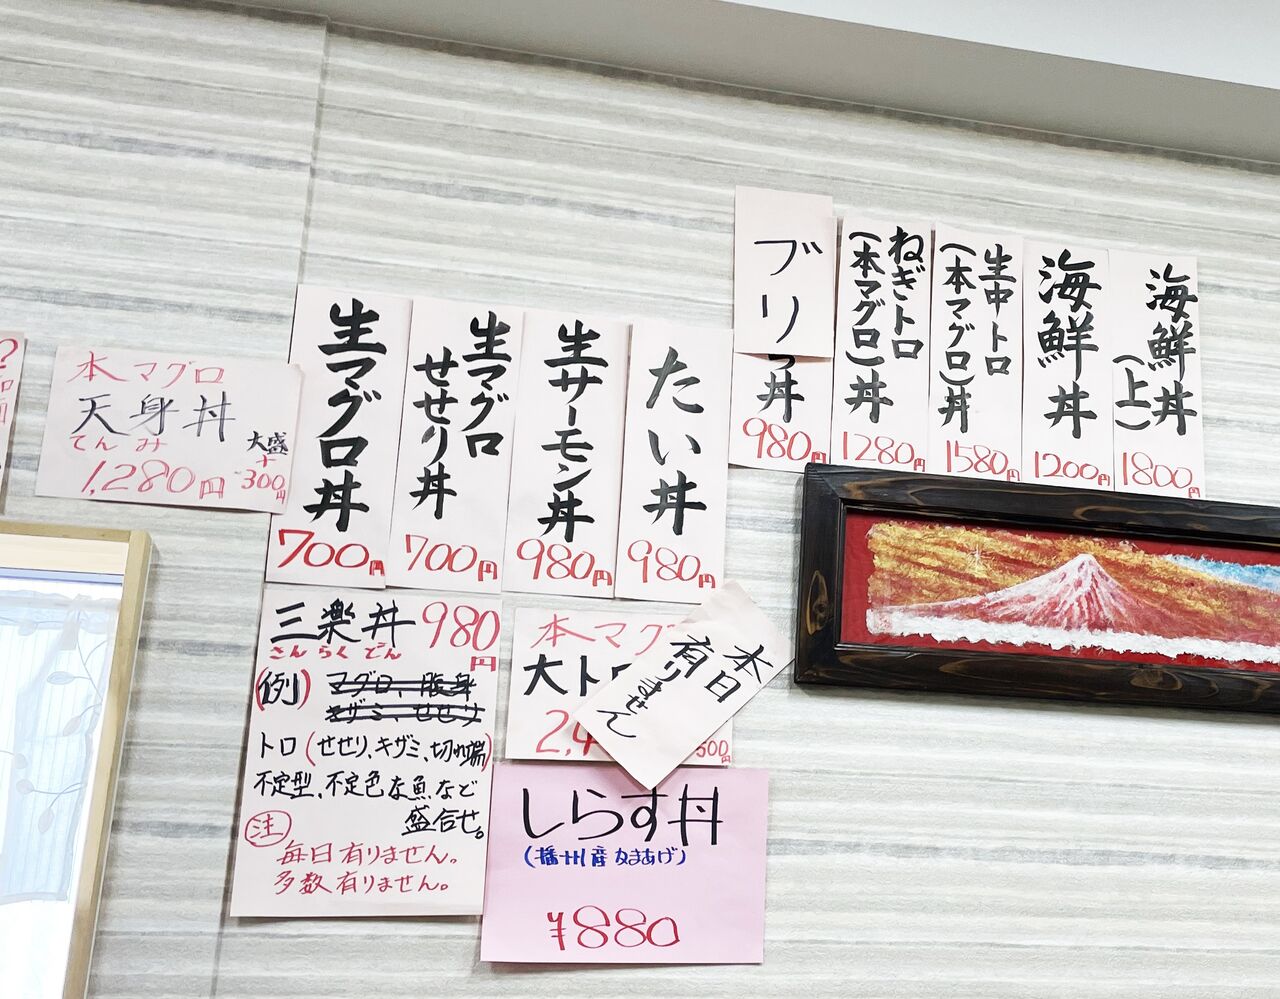 本マグロ
天身丼
てんみ
1,280円
大盛
+
300円
生マグロ丼
700円
生マグロ
せせり丼
700円
生サーモン丼
980円
たい丼
980円
ブリ
丼
980円
ねぎトロ
(本マグロ)丼
1280円
生中トロ
(本マグロ)丼
1580円
海鮮丼
1200円
海鮮丼
(上)
1800円
三楽丼 980円
さんらくどん
(例)
トロ(せせり、キザミ、切れ端)
不定型、不定色な魚など
盛合せ。
注
毎日有りません。
多数有りません。
本マグ
大ト
2,4
500円
本日
有りません
しらす丼
(播州産 なまあげ)
¥880